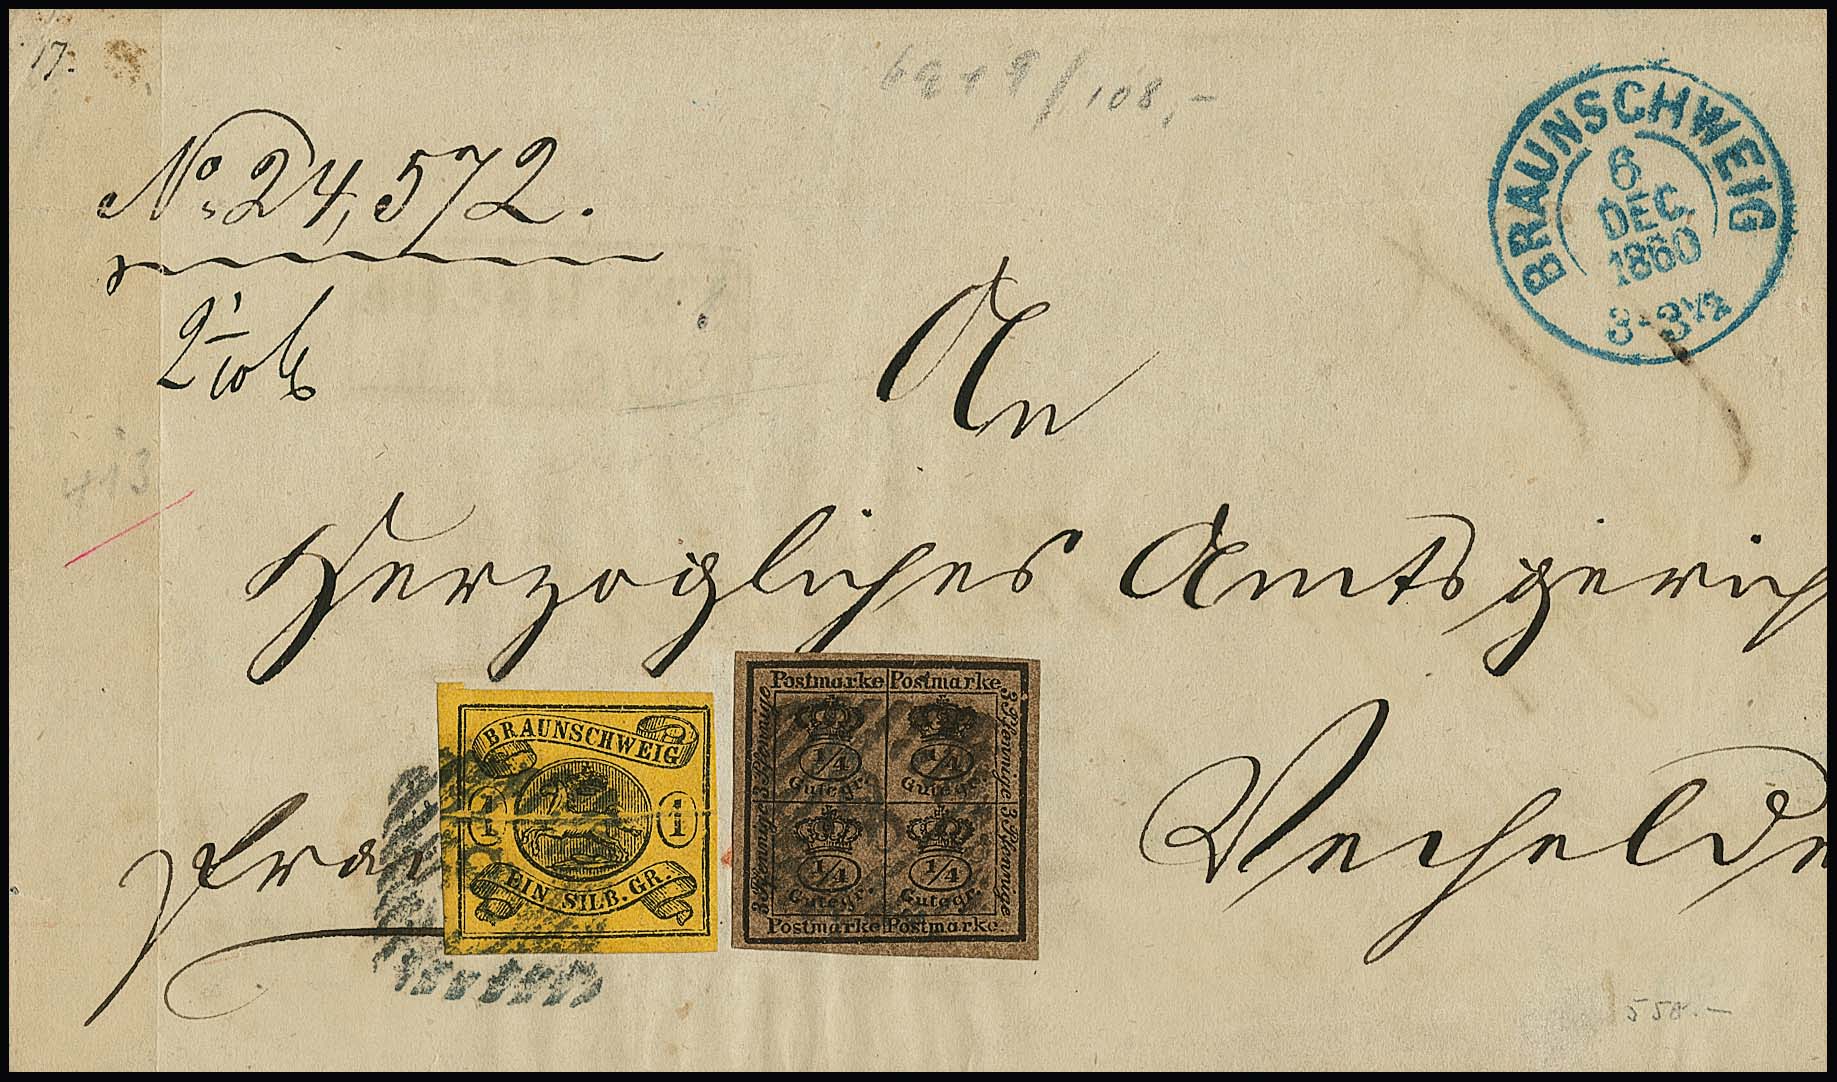 17.
6a+9/108,-
BRAUNSCHWEIG
6
DEC.
1860
3-3½
No. 24,572.
2 1/10 lb
An
413
Herzogliches Amtsgerich
Vechelde
BRAUNSCHWEIG
1/1 1/1
EIN SILB. GR.
Postmarke Postmarke
3 Pfennige 3 Pfennige
3 Pfennige 3 Pfennige
1/4 1/4
Gutegr. Gutegr.
1/4 1/4
Gutegr. Gutegr.
Postmarke Postmarke
558.-